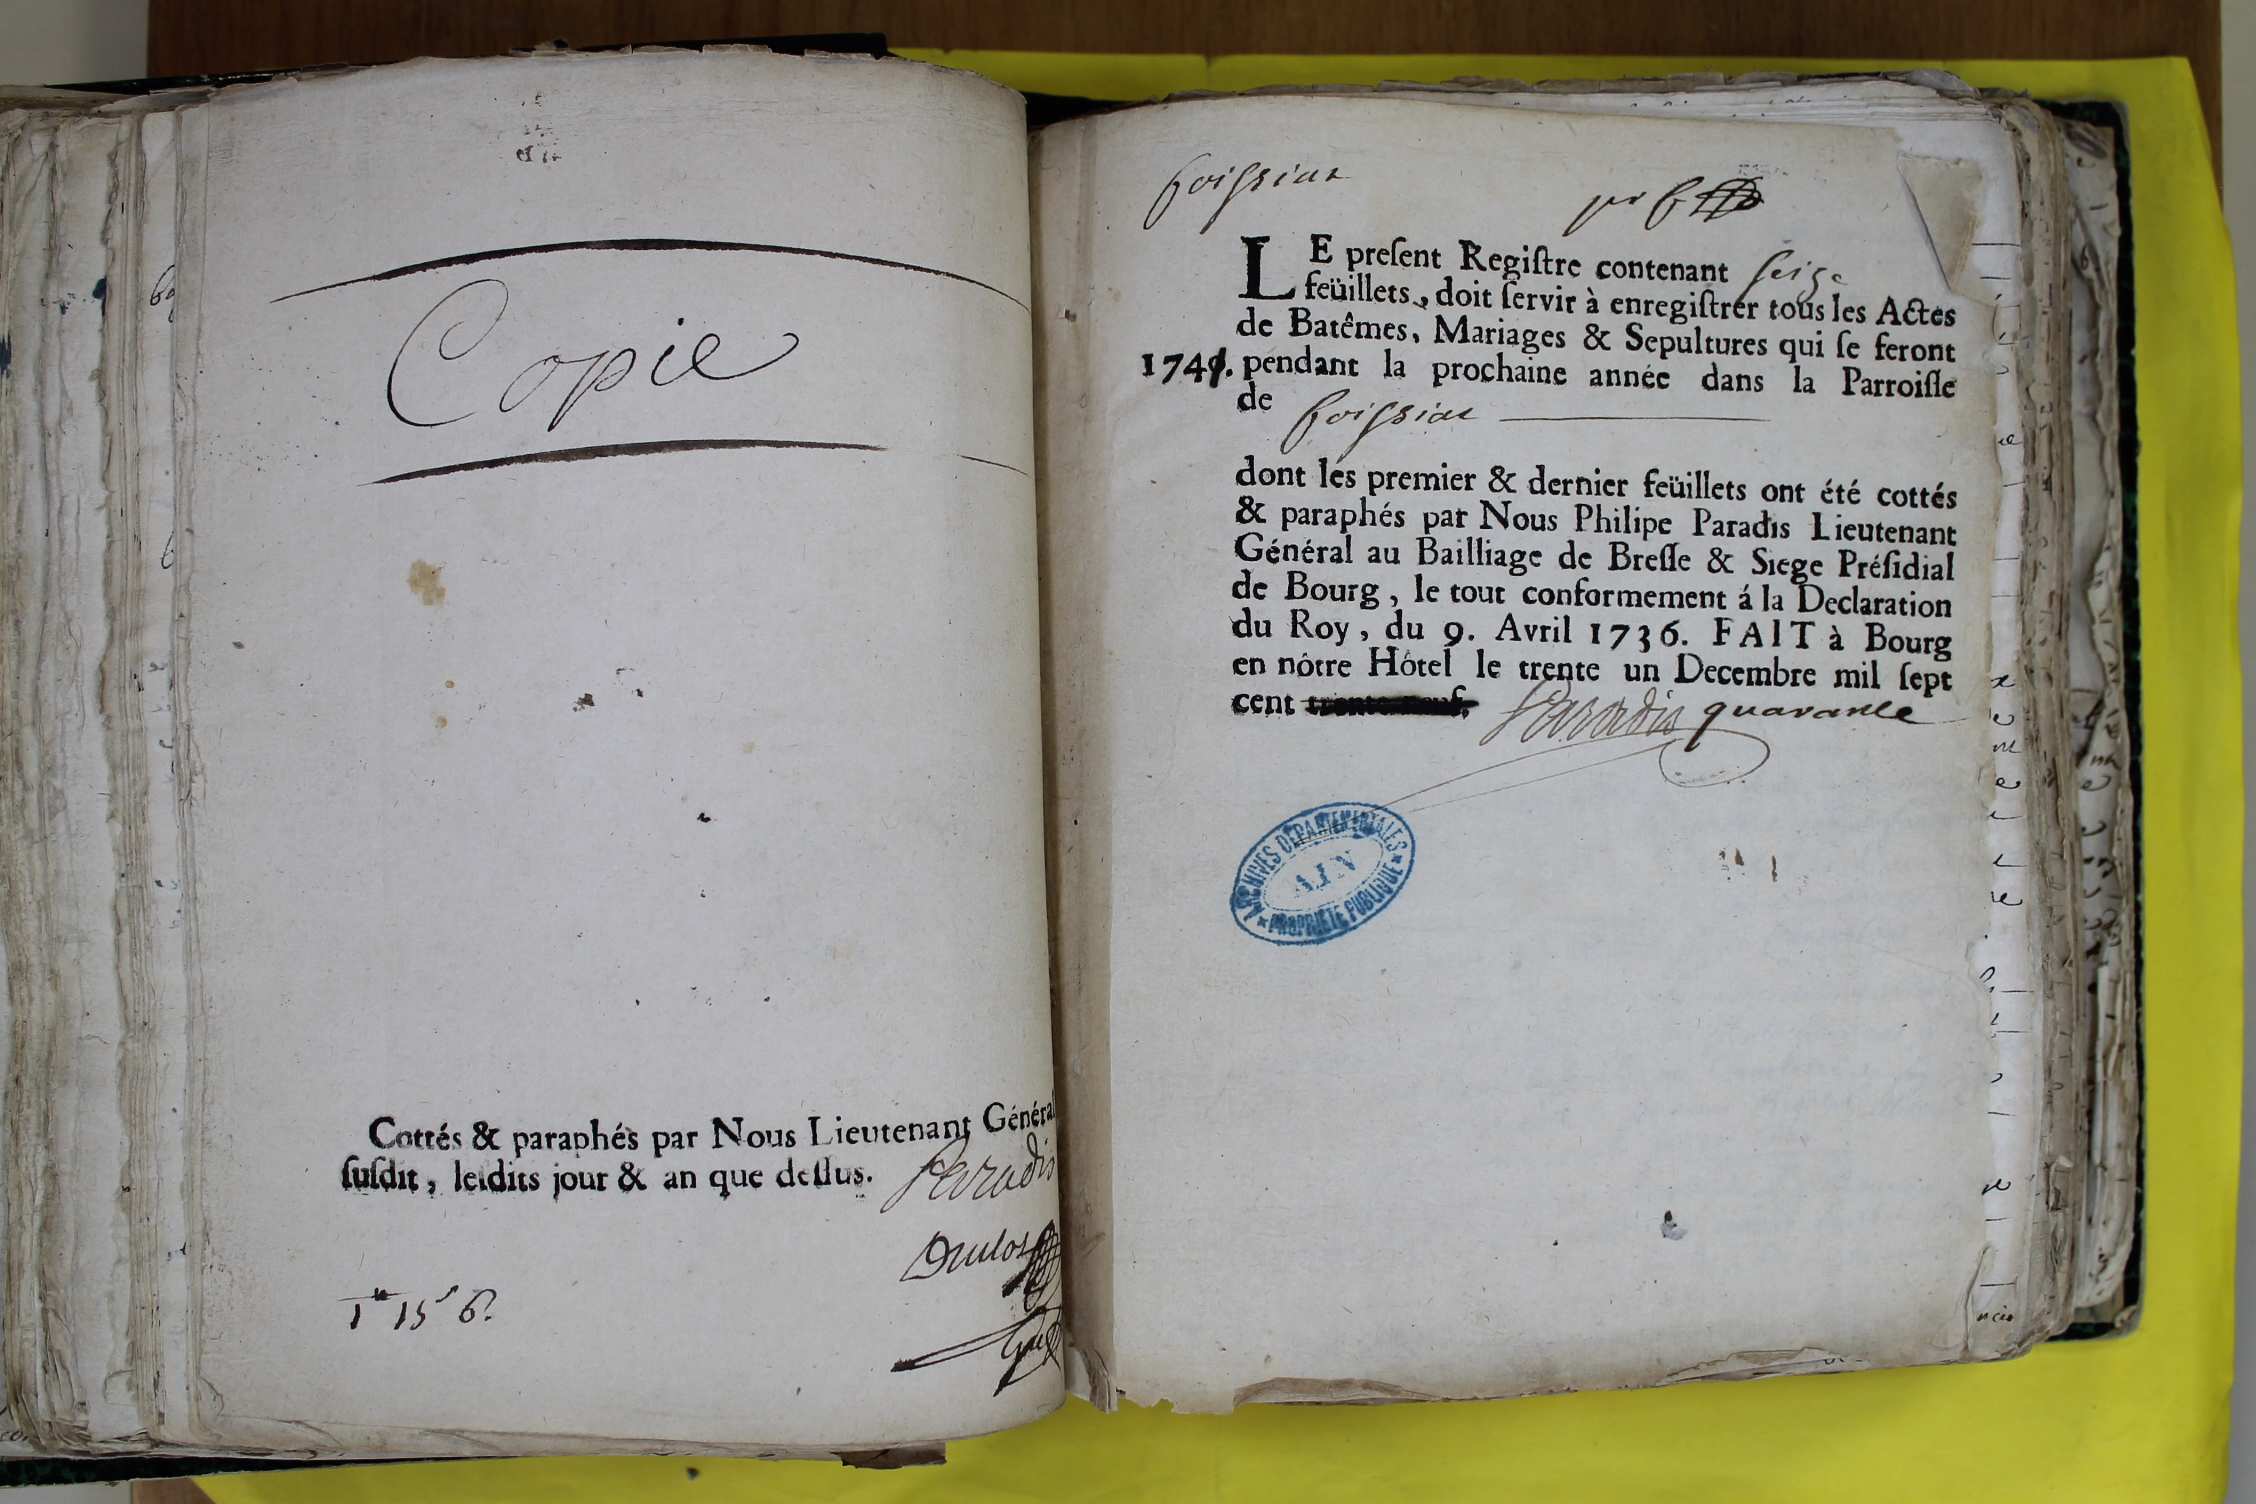 Copie
Cottés & paraphés par Nous Lieutenant Général
ſuſdit, leſdits jour & an que deſſus. Paradis
1 15 6
Boissiat
LE preſent Regiſtre contenant seize
feüillets, doit ſervir à enregiſtrer tous les Actes
de Batêmes, Mariages & Sepultures qui ſe feront
1741. pendant la prochaine année dans la Parroiſſe
de Boissiat
dont les premier & dernier feüillets ont été cottés
& paraphés par Nous Philipe Paradis Lieutenant
Général au Bailliage de Breſſe & Siege Préſidial
de Bourg, le tout conformement á la Declaration
du Roy, du 9. Avril 1736. FAIT à Bourg
en nôtre Hôtel le trente un Decembre mil ſept
cent trente neuf. Paradis quarante
ARCHIVES DÉPARTEMENTALES
AIN
PROPRIÉTÉ PUBLIQUE